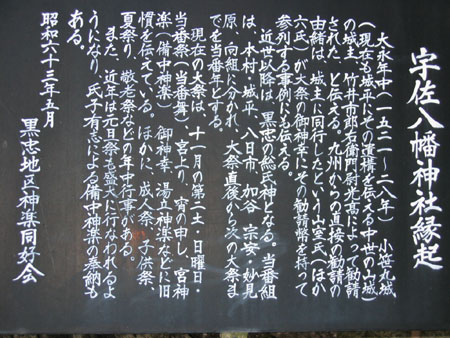 宇佐八幡神社縁起
大永年中(一五二一〜二八年)小笹丸城
(現在も城平にその遺構を伝える中世の山城)
の城主、竹井市郎右衛門尉光高によって勧請
された、と伝える。九州からの直接の勧請の
由緒は、城主に同行したという山室氏(ほか
六氏)が大祭の御神幸にその勧請幣を持って
参列する事例にも伝える。
近世以降は、黒忠の総氏神となる。当番組
は、本村・城平、八日市、加谷・宗安・妙見
原、向組に分かれ、大祭直後から次の大祭ま
でを当番年とする。
現在の大祭は、十一月の第二土・日曜日・
当番祭(当番舞)宮上り、宵の申し、宮神
楽(備中神楽)御神幸、湯立神楽などに旧
慣を伝えている。ほかに、成人祭、子供祭、
夏祭り、敬老祭などの年中行事がある。
また、近年は元旦祭も盛大に行なわれるよ
うになり、氏子有志による備中神楽の奉納も
ある。
昭和六十三年五月
黒忠地区神楽同好会